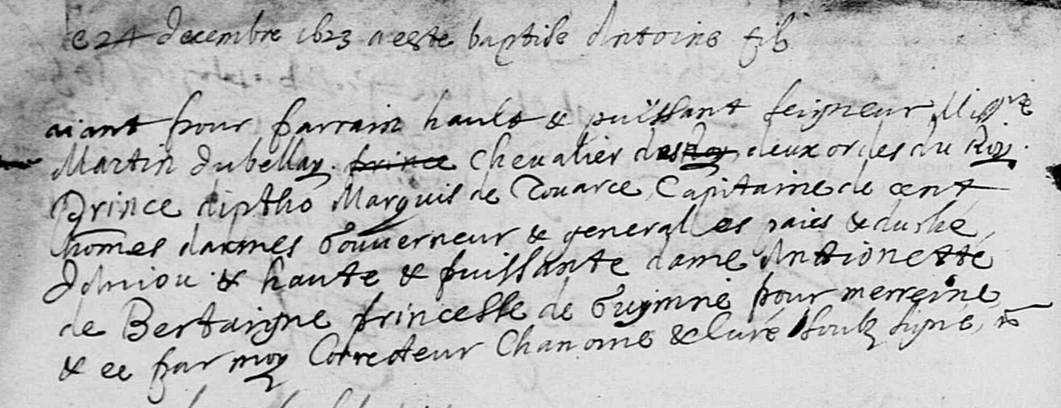 e 24 decembre 1623 a este baptise Antoine fils
aiant pour parrain hault & puissant seigneur Missire
Martin dubellay prince chevalier des deux ordes du Roy
Prince diptho Marquis de Touarce Capitaine de cent
homes darmes Gouverneur & general es païs & duché
dAniou & haute & puissante dame Antionette
de Bertaigne princesse de Guymné pour merreine
& ce par moy Correcteur Chanoine & Curé soubz signé